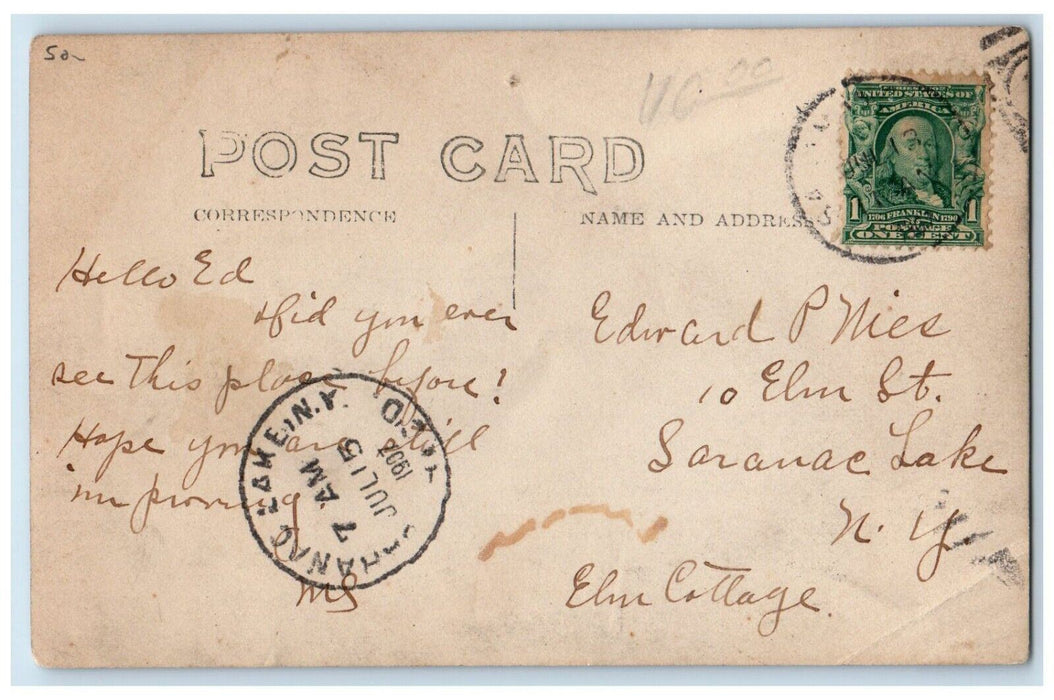 50-
POST CARD
CORRESPONDENCE
NAME AND ADDRESS
SERIES 1902
UNITED STATES OF
AMERICA
1
1706 FRANKLIN 1790
1
POSTAGE
ONE CENT
Hello Ed
Did you ever
see this place before?
Hope you are still
improving
MS
SARANAC LAKE, N.Y.
REC'D
7 AM
JUL 15
1907
Edward P Nies
10 Elm St.
Saranac Lake
N. Y.
Elm Cottage.